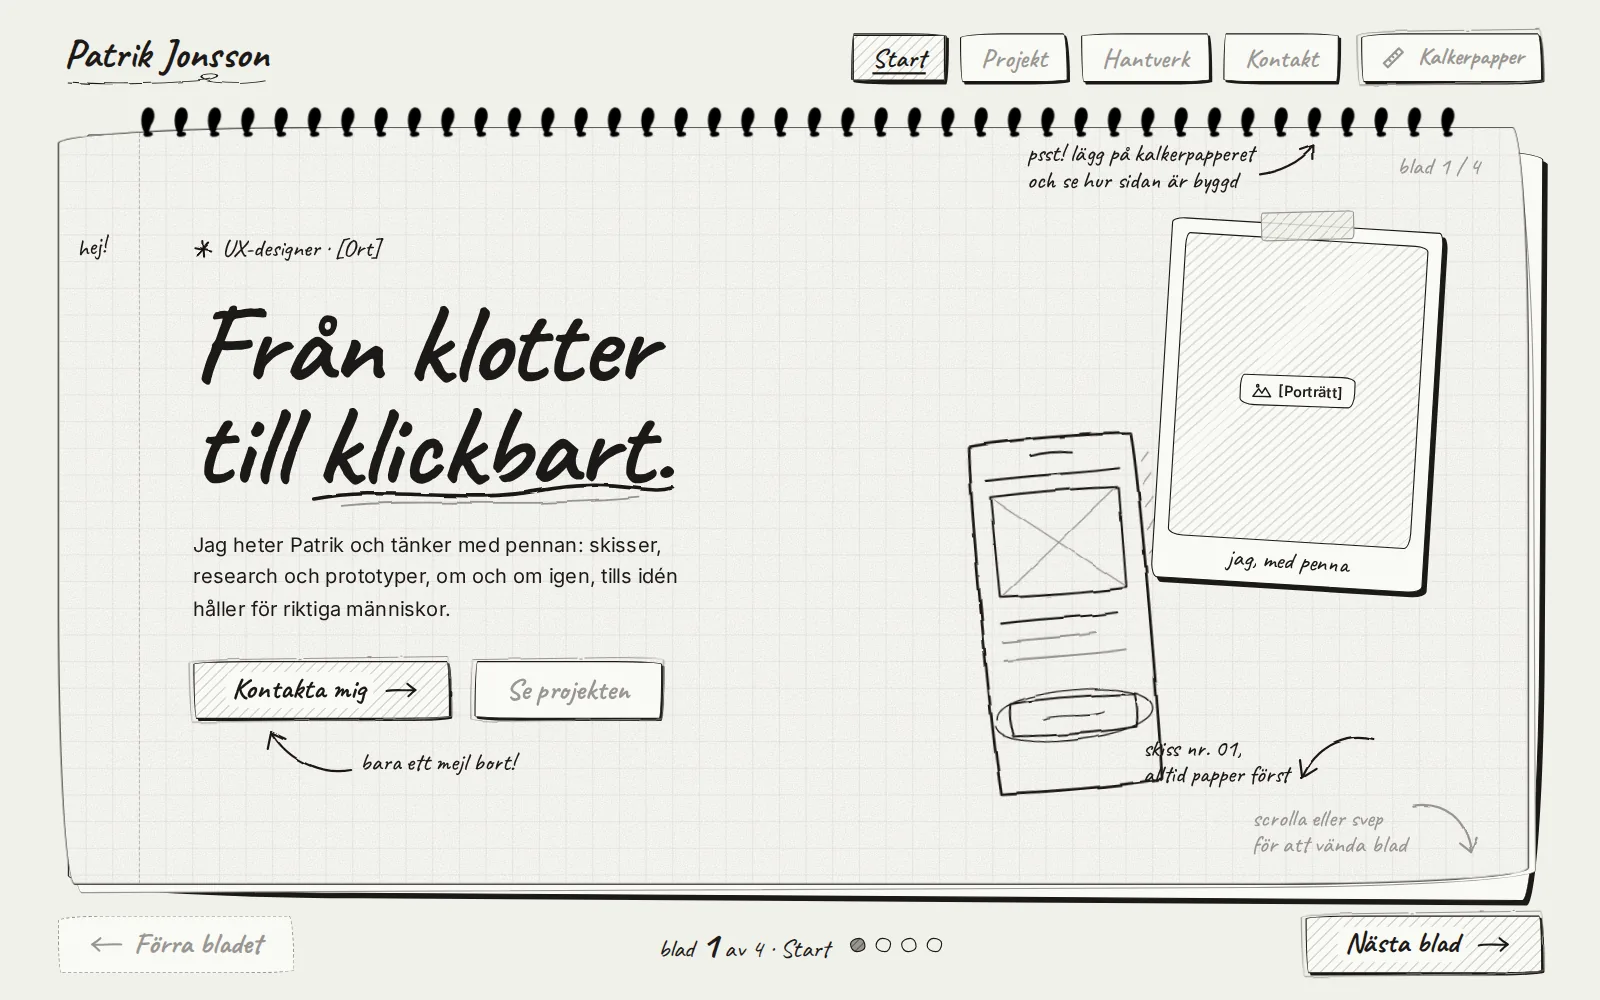 Patrik Jonsson
Start
Projekt
Hantverk
Kontakt
Kalkerpapper
psst! lägg på kalkerpapperet
och se hur sidan är byggd
blad 1 / 4
hej!
UX-designer · [Ort]
Från klotter
till klickbart.
Jag heter Patrik och tänker med pennan: skisser,
research och prototyper, om och om igen, tills idén
håller för riktiga människor.
Kontakta mig →
Se projekten
bara ett mejl bort!
[Porträtt]
jag, med penna
skiss nr. 01,
alltid papper först
scrolla eller svep
för att vända blad
← Förra bladet
blad 1 av 4 · Start
Nästa blad →